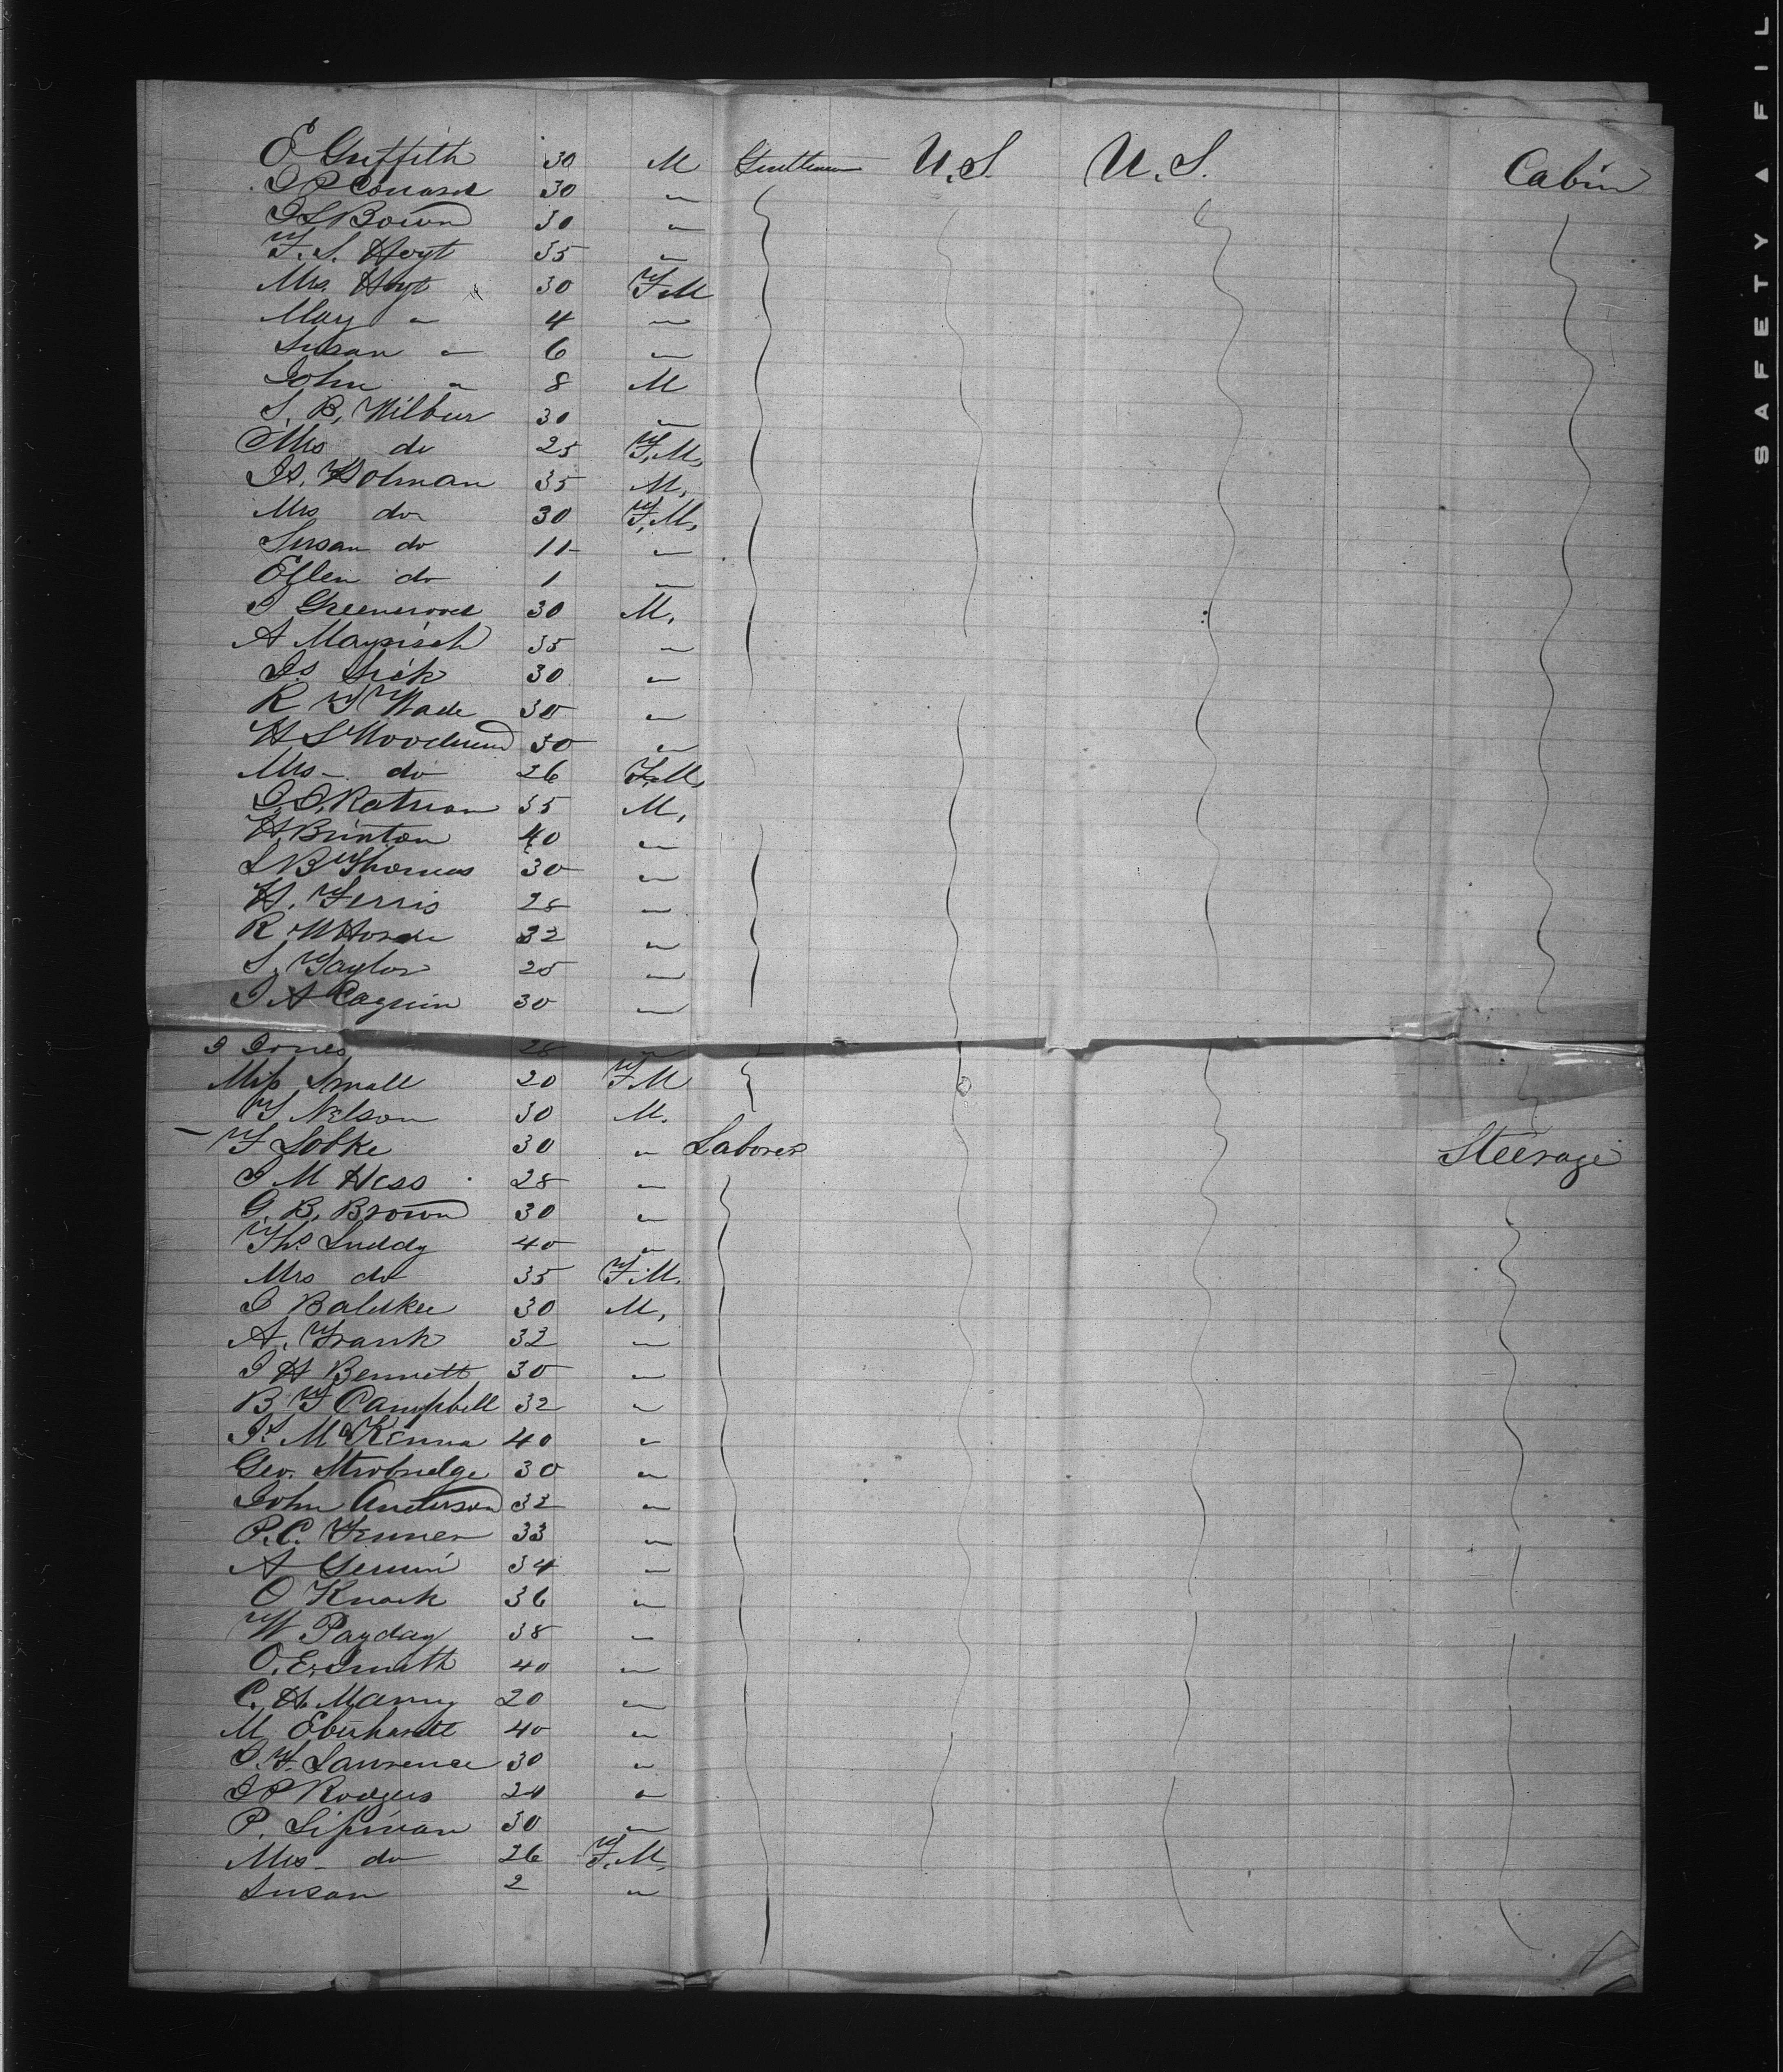 E Griffith 30 M Gentleman U.S. U.S. Cabin
J P Conard 30 "
J S Bown 30 "
F. S. Hoyt 35 "
Mrs. Hoyt 30 F M
Mary " 4 "
Susan " 6 "
John " 8 M
S. B. Wilbur 30 "
Mrs do 25 F. M.
H. Holman 35 M.
Mrs do 30 F. M.
Susan do 11 "
Ellen do 1 "
J Greenwood 30 M.
A 35 "
Js Sick 30 "
R T Wade 30 "
H S 30 "
Mrs - do 26 F. M.
35 M.
H Brinton 40 "
S B Thomas 30 "
H. Ferris 28 "
R 32 "
S. Taylor 25 "
J A 30 "
J Jones 28 "
Miss Small 20 F M
T Nelson 30 M.
F Lobke 30 " Laborer Steerage
J M Hess 28 "
G. B. Brown 30 "
Ths Luddy 40 "
Mrs do 35 F. M.
J 30 M.
A. Frank 32 "
J H Bennett 30 "
B F Campbell 32 "
McKenna 40 "
Geo. Strobridge 30 "
John Anderson 32 "
P. C. Fenner 33 "
A 34 "
O Knack 36 "
W Payday 38 "
O. E. Smith 40 "
C. H. Manny 20 "
M Eberhardt 40 "
J. F. Lawrence 30 "
J P Rodgers 24 "
P. Lipman 30 "
Mrs - do 26 F. M.
Susan 2 "
SAFETY ▲ FIL